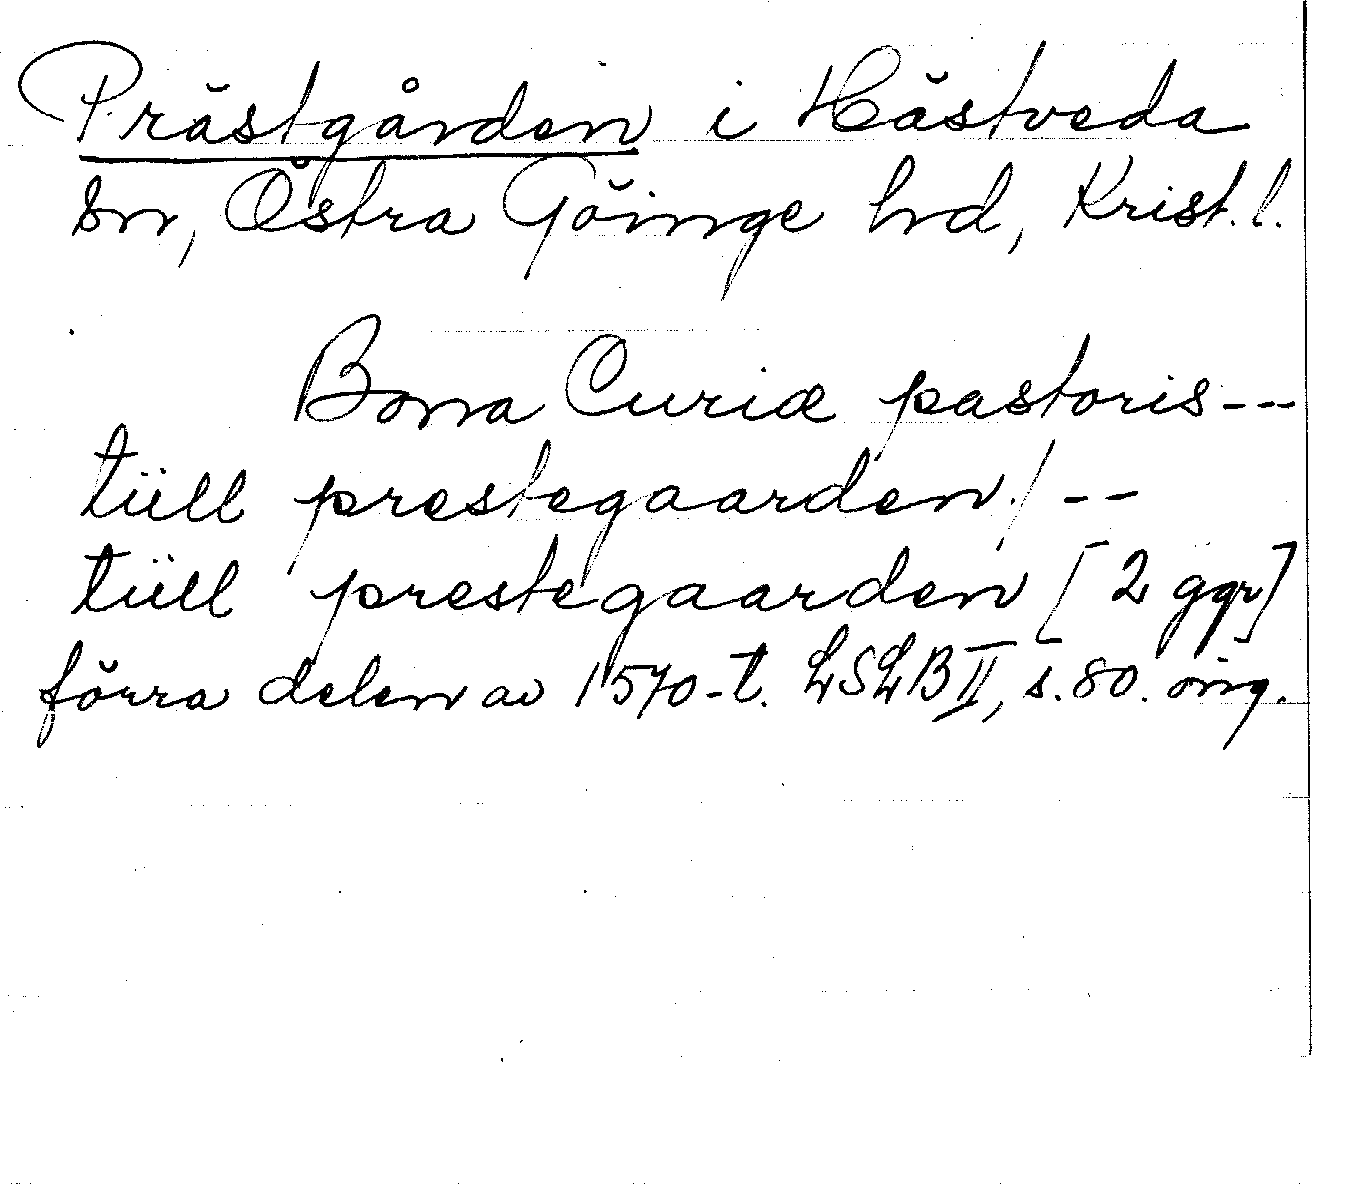 Prästgården i Hästveda
sn, Östra Göinge hd, Krist. l.
Bona Curiæ pastoris ---
tiill prestegaarden / --
tiill prestegaarden [2 ggr]
förra delen av 1570-t. LSLB II, s. 80. orig.